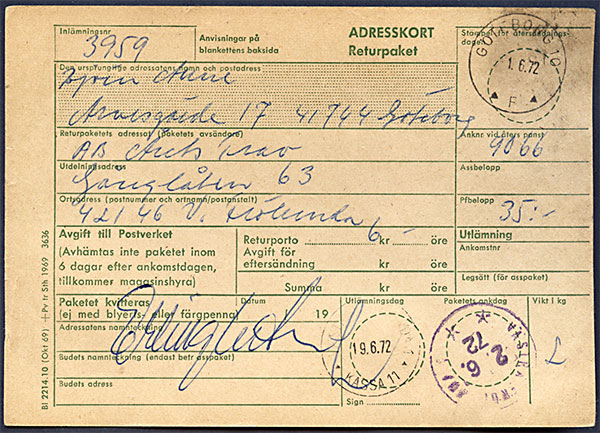 Inlämningsnr
3959
Anvisningar på
blankettens baksida
ADRESSKORT
Returpaket
Stämpel för återsändnings-
GÖTEBORG
1.6.72
F
Den ursprunglige adressatens namn och postadress
Björn
17 41744 Göteborg
Returpaketets adressat (paketets avsändare)
AB
Anknr vid åters panst
9066
Utdelningsadress
63
Assbelopp
Ortsadress (postnummer och ortnamn/postanstalt)
42146 V. Frölunda
Pfbelopp
35:-
Avgift till Postverket
(Avhämtas inte paketet inom
6 dagar efter ankomstdagen,
tillkommer magasinshyra)
Returporto 6 kr öre
Avgift för
eftersändning kr öre
Summa kr öre
Utlämning
Ankomstnr
Legsätt (för asspaket)
Paketet kvitteras
(ej med blyerts- eller färgpenna)
Datum
19
Utlämningsdag
Paketets ankdag
Vikt i kg
Adressatens namnteckning
19.6.72
KASSA 11
2.6.
72
Budets namnteckning (endast betr asspaket)
Budets adress
Sign
Bl 2214.10 (Okt 69) Pv tr Sth 1969 3636